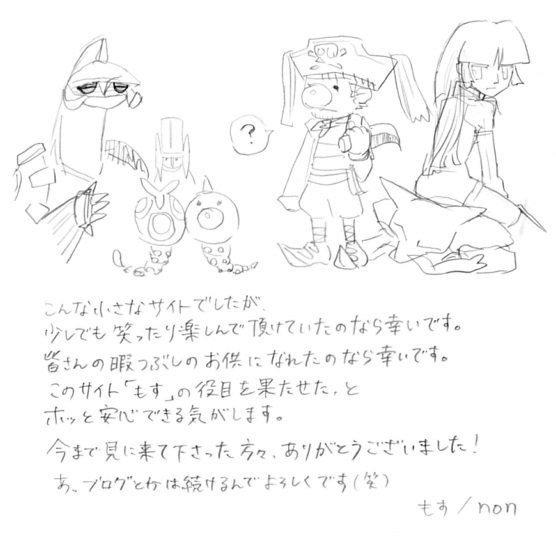 ?
こんな小さなサイトでしたが、
少しでも笑ったり楽しんで頂けていたのなら幸いです。
皆さんの暇つぶしのお供になれたのなら幸いです。
このサイト「もす」の役目を果たせた、と
ホッと安心できる気がします。
今まで見に来て下さった方々、ありがとうございました!
あ、ブログとかは続けるんでよろしくです(笑)
もす/non